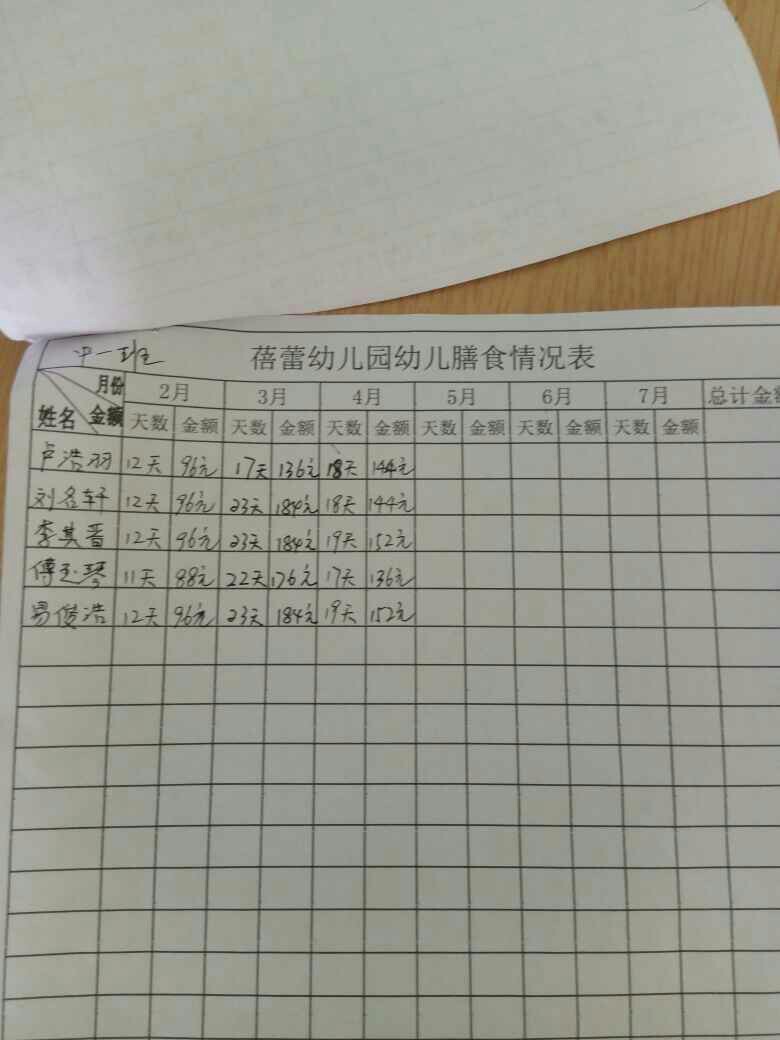 中一班 蓓蕾幼儿园幼儿膳食情况表
月份 2月 3月 4月 5月 6月 7月 总计金额
姓名 金额 天数 金额 天数 金额 天数 金额 天数 金额 天数 金额 天数 金额
卢浩羽 12天 96元 17天 136元 18天 144元
刘名轩 12天 96元 23天 184元 18天 144元
李其晋 12天 96元 23天 184元 19天 152元
傅玉琴 11天 88元 22天 176元 17天 136元
易俊浩 12天 96元 23天 184元 19天 152元